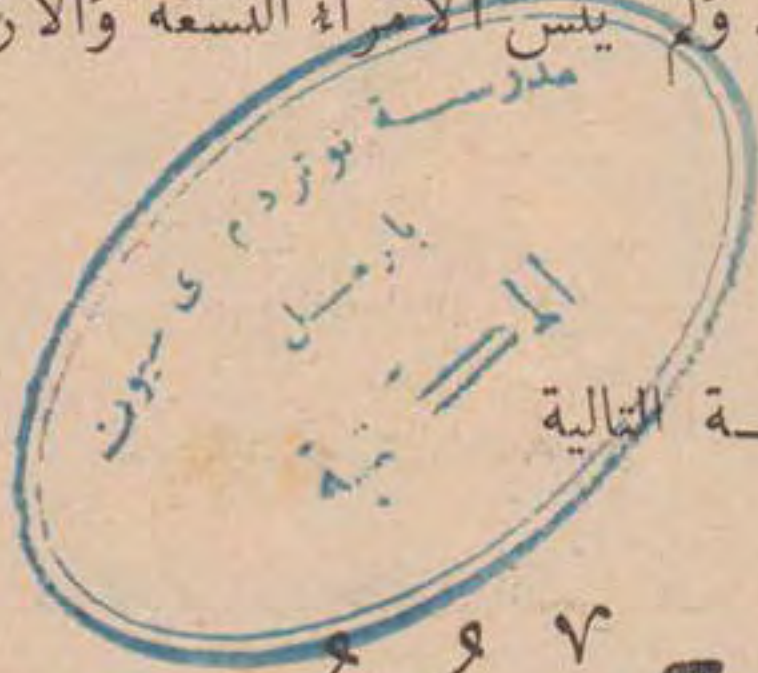 ولم ينس الأمراء التسعة والأر
مدرسة نوتردم دى سيون
بازميل
المكتبة
ـة التالية